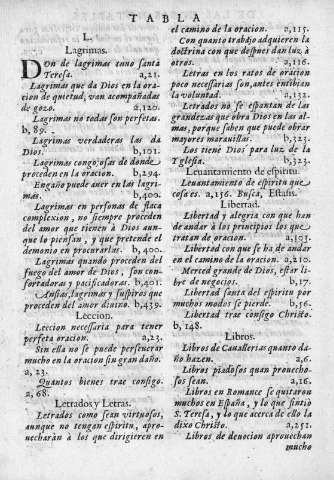 TABLA
L.
Lagrimas.
Don de lagrimas tuuo santa
Teresa. a,21.
Lagrimas que da Dios en la ora-
cion de quietud, van acompañadas
de gozo. a,120.
Lagrimas no todas son perfetas.
b, 89.
Lagrimas verdaderas las da
Dios. b,101.
Lagrimas congojosas de donde
proceden en la oracion. b,294.
Engaño puede auer en las lagri-
mas. b,400.
Lagrimas en personas de flaca
complexion, no siempre proceden
del amor que tienen à Dios aun-
que lo piensan, y que pretende el
demonio en procurarlas. b,400.
Lagrimas quando proceden del
fuego del amor de Dios, son con-
fortadoras y pacificadoras. b,401.
Ansias, lagrimas y suspiros que
proceden del amor diuino. b,439.
Leccion.
Leccion necessaria para tener
perfeta oracion. a,23.
Sin ella no se puede perseuerar
mucho en la oracion sin gran daño.
a, 23.
Quantos bienes trae consigo.
a, 68.
Letrados y Letras.
Letrados como sean virtuosos,
aunque no tengan espiritu, apro-
uecharàn à los que dirigieren en
el camino de la oracion. a,115.
Con quanto trabajo adquieren la
doctrina con que despues dan luz à
otros. a,116.
Letras en los ratos de oracion
poco necessarias son, antes entibian
la voluntad. a,132.
Letrados no se espantan de las
grandezas que obra Dios en las al-
mas, porque saben que puede obrar
mayores marauillas. b,323.
Los tiene Dios para luz de la
Yglesia. b,323.
Leuantamiento de espiritu.
Leuantamiento de espiritu que
cosa es. a,156. Busca, Extasis.
Libertad.
Libertad y alegria con que han
de andar à los principios los que
tratan de oracion. a,103.
Libertad con que se ha de andar
en el camino de la oracion. a,210.
Merced grande de Dios, estàr li-
bre de negocios. b,17.
Libertad santa del espiritu por
muchos modos se pierde. b,56.
Libertad trae consigo Christo.
b, 148.
Libros.
Libros de Cauallerias quanto da-
ño hazen. a,6.
Libros piadosos quan prouecho-
sos sean. a,16.
Libros en Romance se quitaron
muchos en España, y lo que sintiò
S. Teresa, y lo que acerca de ello la
dixo Christo. a,251.
Libros de deuocion aprouechan
mucho